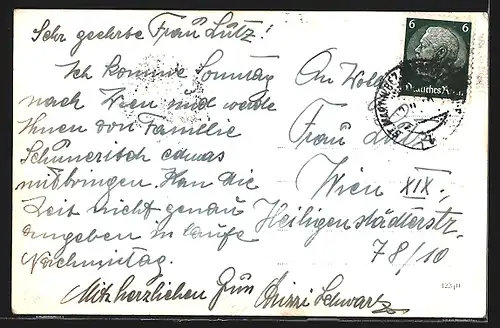 Sehr geehrte Frau Lutz!
Ich komme Sonntag
nach Wien und werde
Ihnen von Familie
Schunerisch etwas
mitbringen. Kan die
Zeit nicht genau
angeben im laufe
Nachmittag.
Mit herzlichen Gruß Schwarz
An Wohl
Frau
Wien XIX.,
Heiligenstädterstr.
78/10
6 6
Deutsches Reich